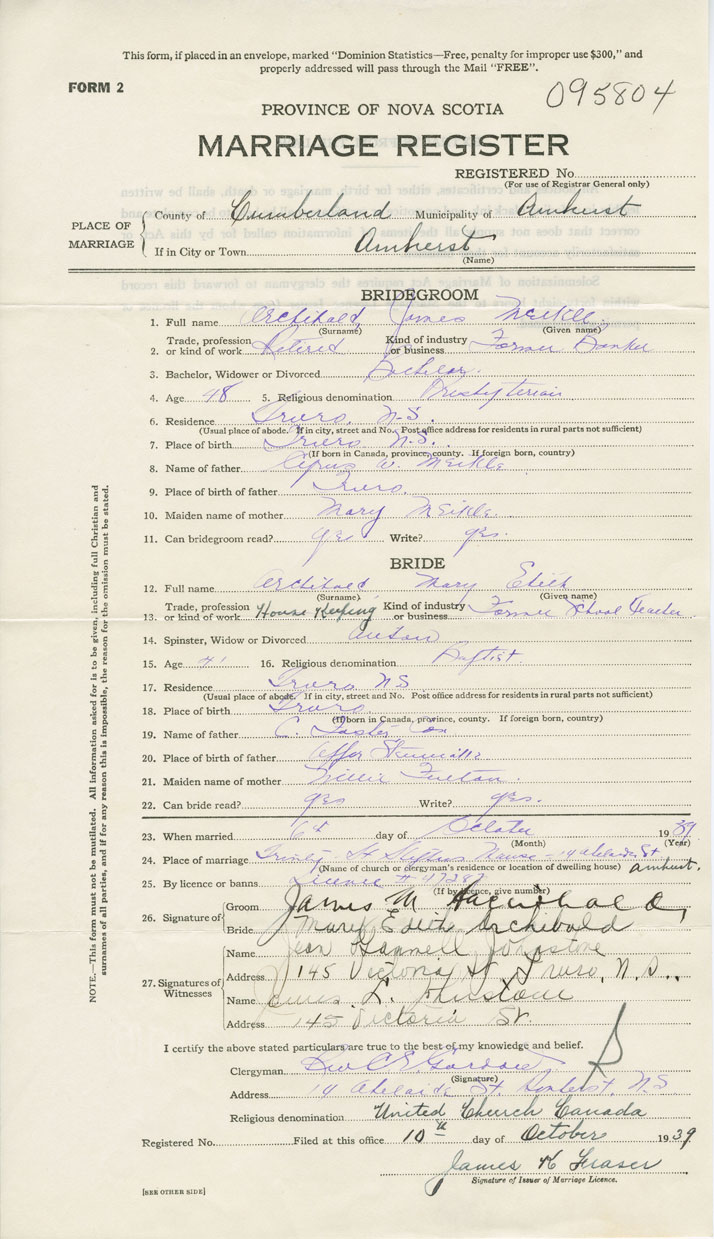 This form, if placed in an envelope, marked "Dominion Statistics—Free, penalty for improper use $300," and
properly addressed will pass through the Mail "FREE".
FORM 2
095804
PROVINCE OF NOVA SCOTIA
MARRIAGE REGISTER
REGISTERED No.
(For use of Registrar General only)
PLACE OF MARRIAGE
County of Cumberland Municipality of Amherst
If in City or Town Amherst
(Name)
BRIDEGROOM
1. Full name Archibald, James Meikle
(Surname) (Given name)
2. Trade, profession or kind of work Retired Kind of industry or business Former Banker
3. Bachelor, Widower or Divorced Bachelor
4. Age 48 5. Religious denomination Presbyterian
6. Residence Truro, N.S.
(Usual place of abode. If in city, street and No. Post office address for residents in rural parts not sufficient)
7. Place of birth Truro N.S.
(If born in Canada, province, county. If foreign born, country)
8. Name of father Cyrus W. Meikle
9. Place of birth of father Truro
10. Maiden name of mother Mary Meikle
11. Can bridegroom read? yes Write? yes.
BRIDE
12. Full name Archibald Mary Edith
(Surname) (Given name)
13. Trade, profession or kind of work House Keeping Kind of industry or business Former School Teacher
14. Spinster, Widow or Divorced
15. Age 41 16. Religious denomination Baptist
17. Residence Truro NS
(Usual place of abode. If in city, street and No. Post office address for residents in rural parts not sufficient)
18. Place of birth Truro
(If born in Canada, province, county. If foreign born, country)
19. Name of father C.
20. Place of birth of father
21. Maiden name of mother Fulton
22. Can bride read? yes Write? yes.
23. When married 6th day of October 1939
(Month) (Year)
24. Place of marriage Trinity St Stephens Manse - 14 Adelaide St
(Name of church or clergyman's residence or location of dwelling house) Amherst.
25. By licence or banns Licence #
(If by licence, give number)
26. Signature of
Groom James M Archibald
Bride Mary Edith Archibald
27. Signatures of Witnesses
Name Jean Johnstone
Address 145 Victoria St Truro, N.S.
Name L. Johnstone
Address 145 Victoria St.
I certify the above stated particulars are true to the best of my knowledge and belief.
Clergyman Rev C E Gordon
(Signature)
Address 14 Adelaide St Amherst, N.S
Religious denomination United Church Canada
Registered No. Filed at this office 10th day of October 1939
James K Fraser
Signature of Issuer of Marriage Licence.
[SEE OTHER SIDE]
NOTE.—This form must not be mutilated. All information asked for is to be given, including full Christian and
surnames of all parties, and if for any reason this is impossible, the reason for the omission must be stated.